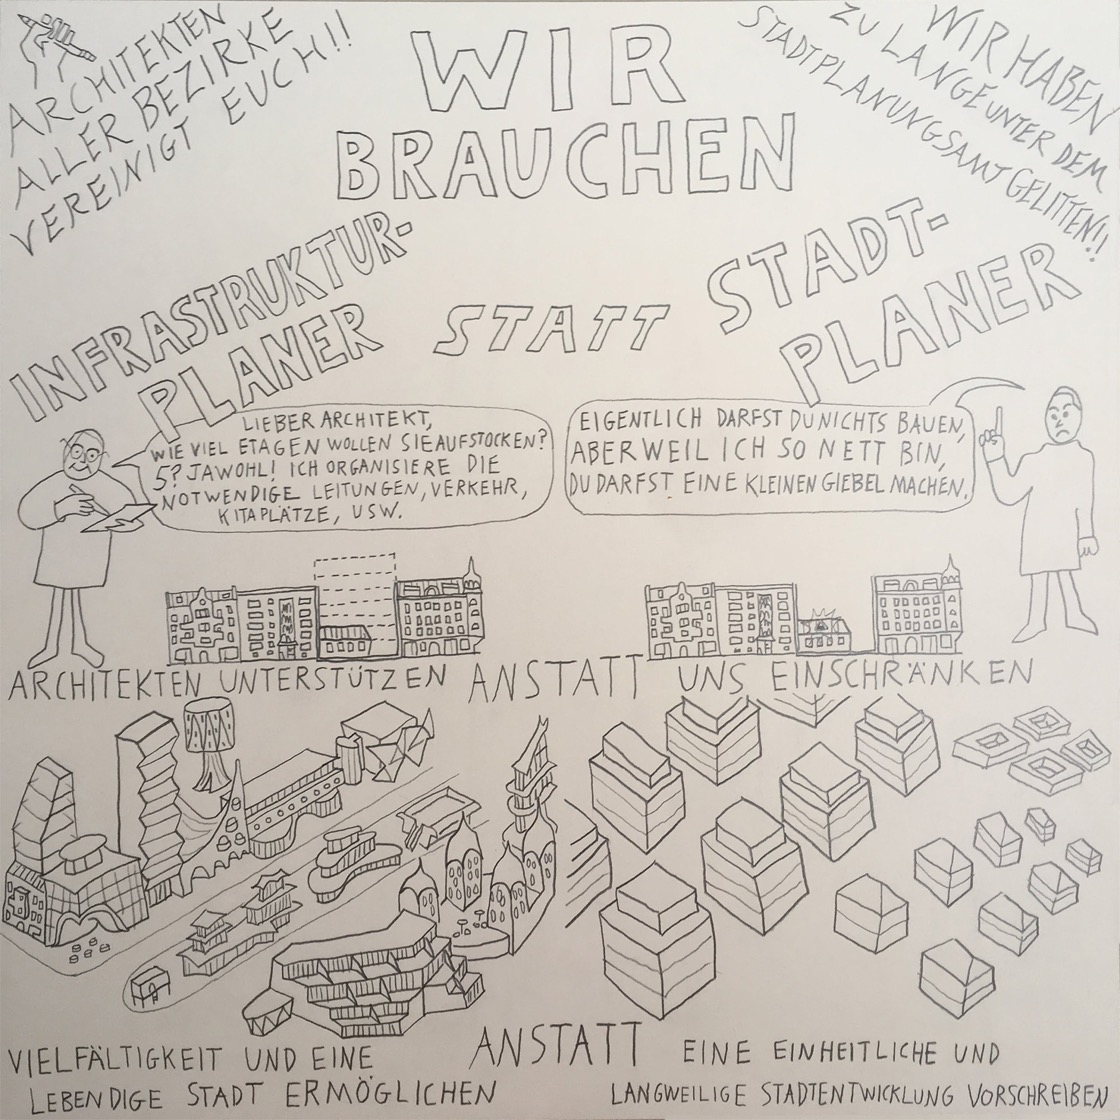 ARCHITEKTEN
ALLER BEZIRKE
VEREINIGT EUCH!!
WIR
BRAUCHEN
WIR HABEN
ZU LANGE UNTER DEM
STADTPLANUNGSAMT GELITTEN!!
INFRASTRUKTUR-
PLANER
STATT
STADT-
PLANER
LIEBER ARCHITEKT,
WIE VIEL ETAGEN WOLLEN SIE AUFSTOCKEN?
5? JAWOHL! ICH ORGANISIERE DIE
NOTWENDIGE LEITUNGEN, VERKEHR,
KITAPLÄTZE, USW.
EIGENTLICH DARFST DU NICHTS BAUEN,
ABER WEIL ICH SO NETT BIN,
DU DARFST EINE KLEINEN GIEBEL MACHEN.
ARCHITEKTEN UNTERSTÜTZEN ANSTATT UNS EINSCHRÄNKEN
VIELFÄLTIGKEIT UND EINE
LEBENDIGE STADT ERMÖGLICHEN
ANSTATT
EINE EINHEITLICHE UND
LANGWEILIGE STADTENTWICKLUNG VORSCHREIBEN